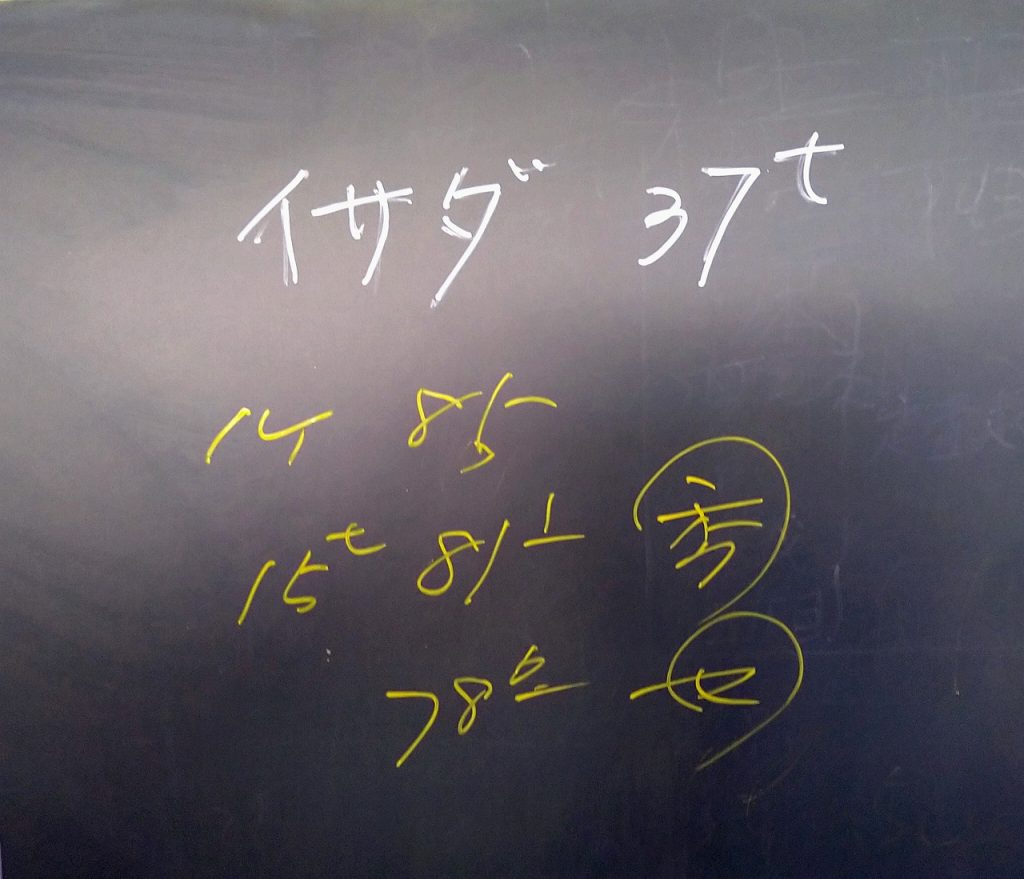 イサダ 37t
14 85-
15t 811 秀
786 セ